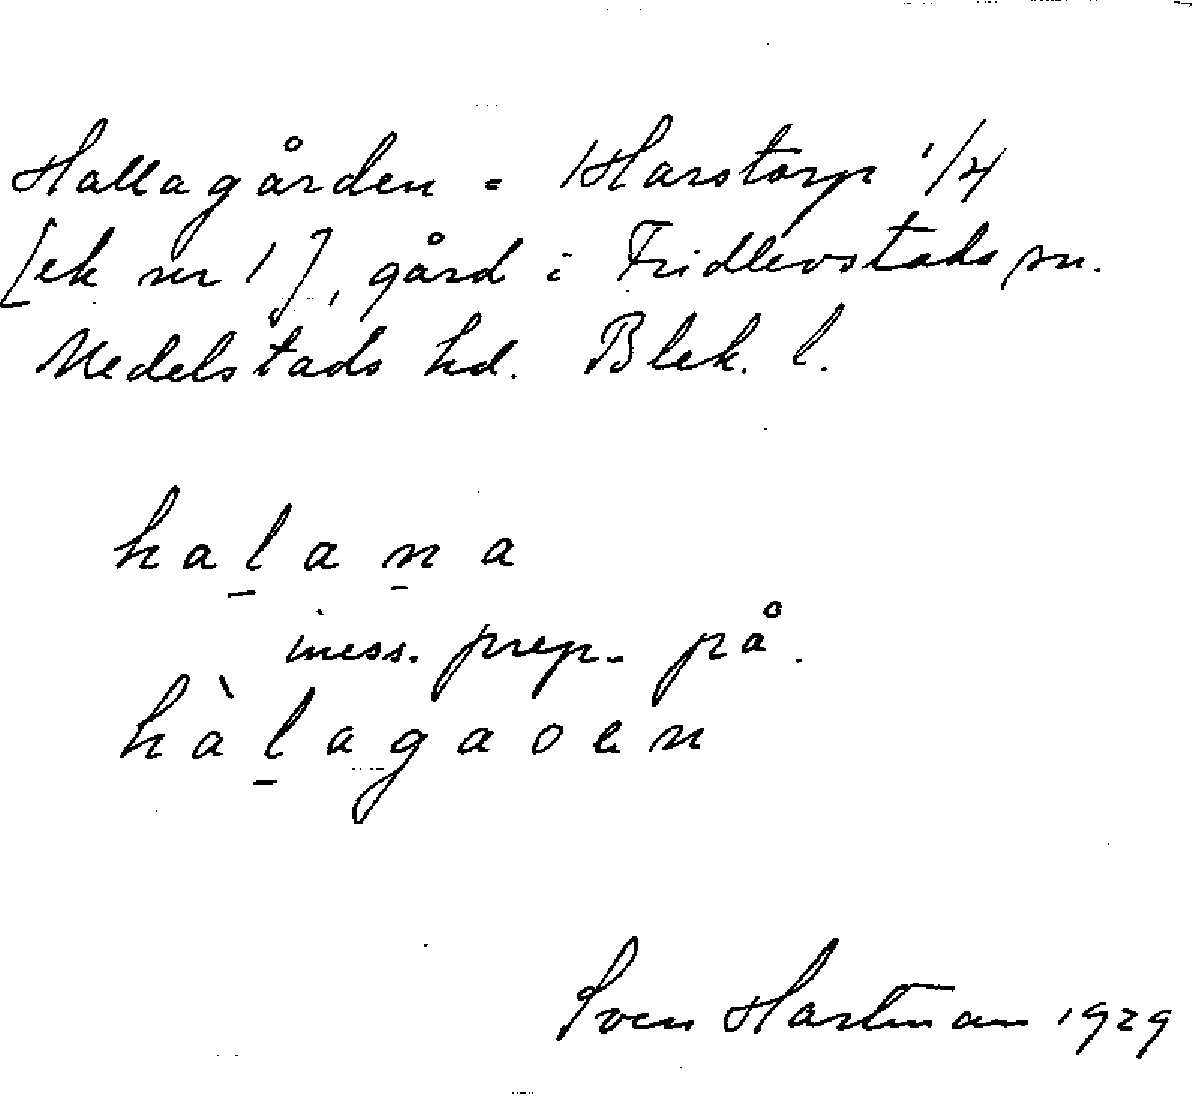 Hallagården = Harstorp 1/4
[ek nr 1], gård i Fridlevstads sn.
Medelstads hd. Blek. l.
ha̱ḻaṉa
iness. prep. på.
hàḻagaoen
Sven Hartman 1929